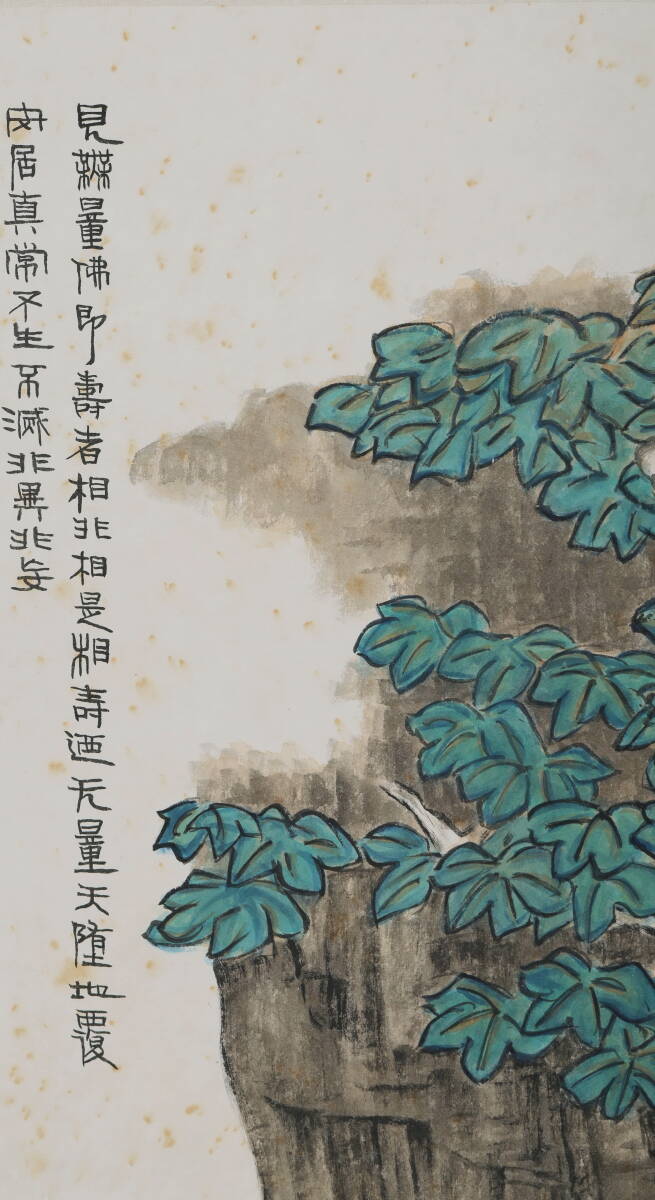 見無量佛即壽者相非相是相壽迺无量天墮地覆
安居真常不生不滅非異非妄